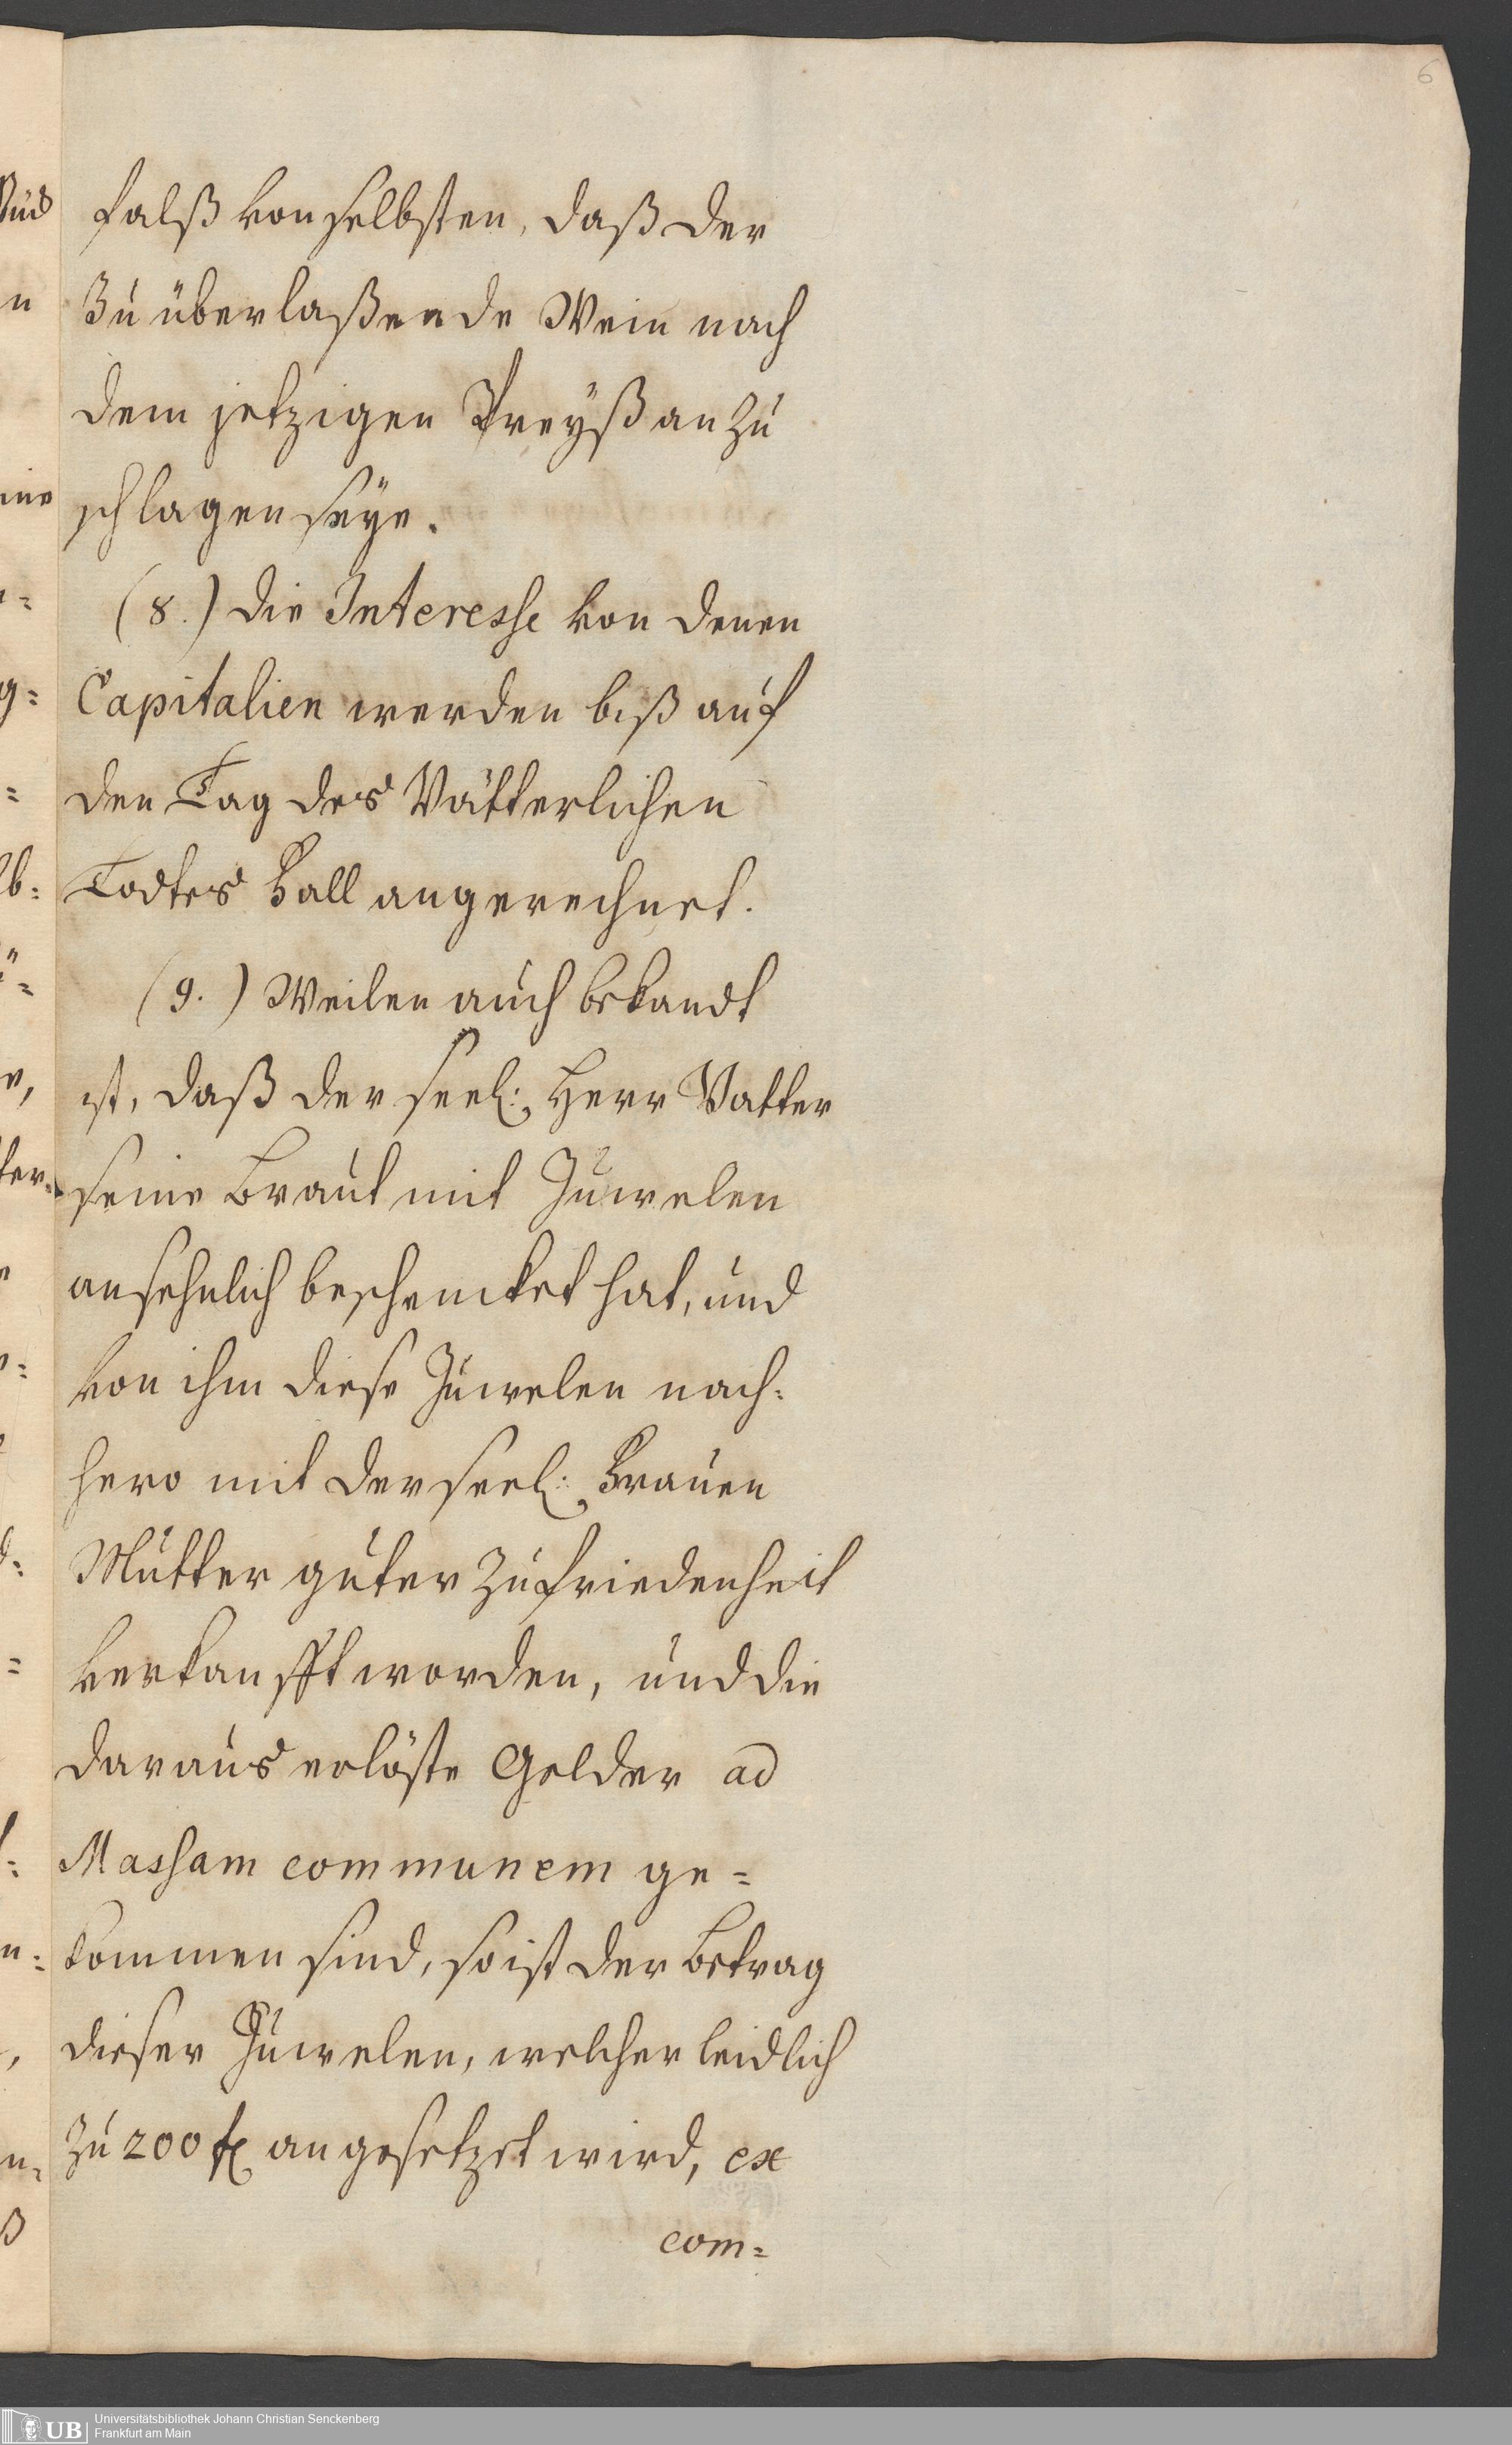 6
falß von selbsten, daß der
Zu überlaßende Wein nach
dem jetzigen Preyß an zu
schlagen seÿe.
(8.) Die Interesse von denen
Capitalien werden biß auf
den Tag des Vätterlichen
Todtes Fall angerechnet.
(9.) Weilen auch bekandt
ist, daß der seel: Herr Vatter
seine Braut mit Juwelen
ansehnlich beschencket hat, und
von ihm diese Juwelen nach=
hero mit der seel: Frauen
Mutter guter Zufriedenheit
verkaufft worden, und die
daraus erlößte Gelder ad
Massam communem ge=
kommen sind, so ist der Betrag
dieser Juwelen, welcher leidlich
zu 200 f angesetzet wird, ex
com=
UB Universitätsbibliothek Johann Christian Senckenberg
Frankfurt am Main